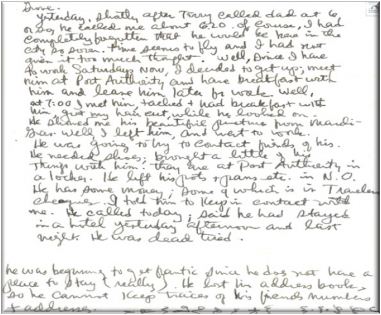 Yesterday, shortly after Terry called dad at 6
or so, he called me about 6:20. Of course, I had
completely forgotten that he would be here in the
city so soon. Time seems to fly and I had not
given it too much thought. Well, since I have
to work Saturdays now, I decided to get up, meet
him at Port Authority and have breakfast with
him and leave him later for work. Well,
at 7:00 I met him, talked + had breakfast with
him, got my hair cut while he looked on
He showed me his beautiful pictures from Mardi-
Gras. Well I left him, and went to work.
He was going to try to contact friends of his.
He needed shoes, brought a little of his
things with him: they are at Port Authority in
a locker. He left his pots + pans etc. in N.O.
He has some money, some of which is in Travelers
cheques. I told him to keep in contact with
me. He called today; said he had stayed
in a hotel yesterday afternoon and last
night. He was dead tired.
he was beginning to get frantic since he does not have a
place to stay (really). He lost his address book,
so he cannot keep traces of his friends numbers
+ addresses.